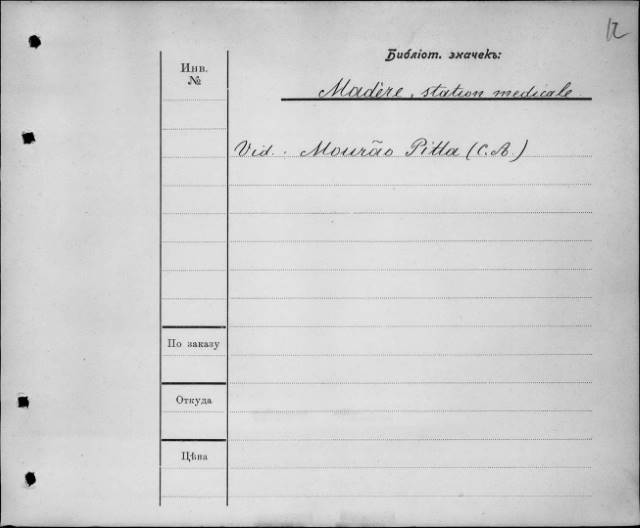 12
Библіот. значекъ:
Инв.
№
Madère, station medicale
Vid. Mourão Pitta (C. A.)
По заказу
Откуда
Цѣна